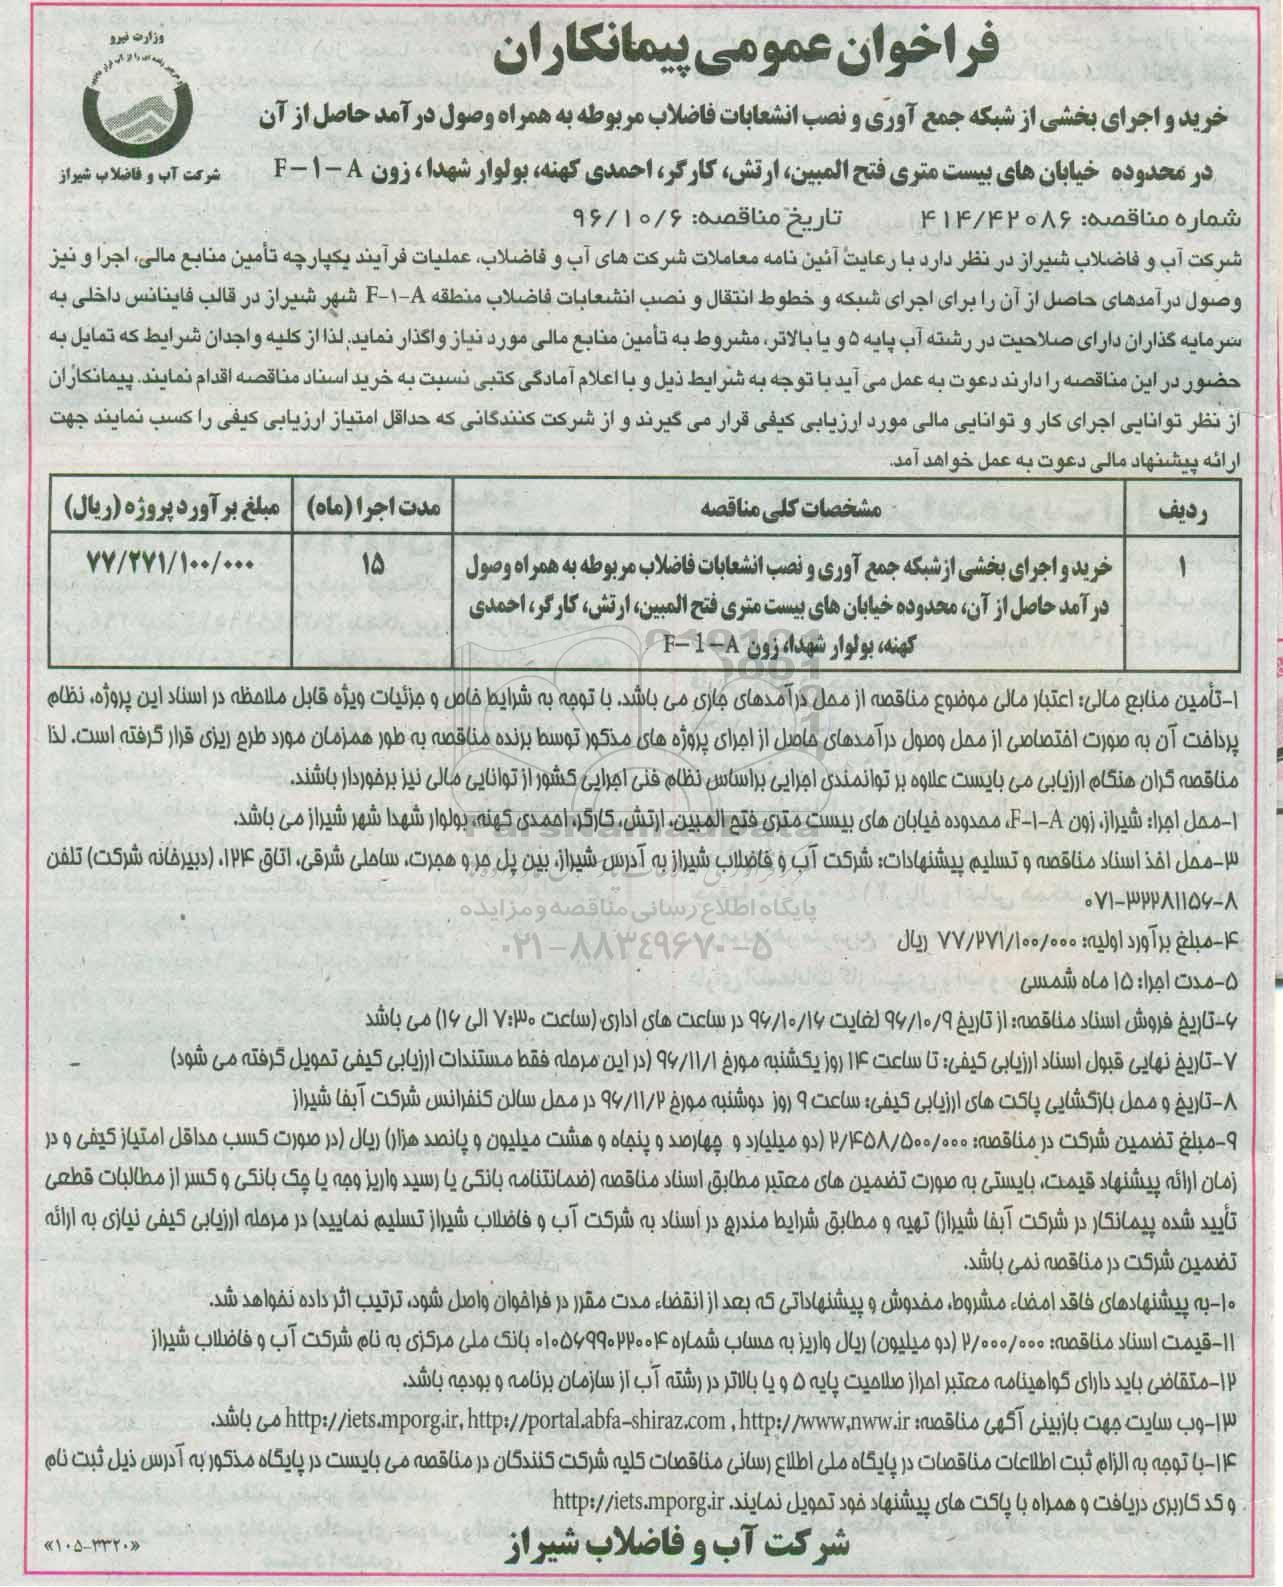 وزارت نیرو
شرکت آب و فاضلاب شیراز
فراخوان عمومی پیمانکاران
خرید و اجرای بخشی از شبکه جمع آوری و نصب انشعابات فاضلاب مربوطه به همراه وصول درآمد حاصل از آن
در محدوده خیابان های بیست متری فتح المبین، ارتش، کارگر، احمدی کهنه، بولوار شهدا، زون F-۱-A
شماره مناقصه: ۴۱۴/۴۲۰۸۶ تاریخ مناقصه: ۹۶/۱۰/۶
شرکت آب و فاضلاب شیراز در نظر دارد با رعایت آئین نامه معاملات شرکت های آب و فاضلاب، عملیات فرآیند یکپارچه تأمین منابع مالی، اجرا و نیز
وصول درآمدهای حاصل از آن را برای اجرای شبکه و خطوط انتقال و نصب انشعابات فاضلاب منطقه F-۱-A شهر شیراز در قالب فاینانس داخلی به
سرمایه گذاران دارای صلاحیت در رشته آب پایه ۵ و یا بالاتر، مشروط به تأمین منابع مالی مورد نیاز واگذار نماید. لذا از کلیه واجدان شرایط که تمایل به
حضور در این مناقصه را دارند دعوت به عمل می آید با توجه به شرایط ذیل و با اعلام آمادگی کتبی نسبت به خرید اسناد مناقصه اقدام نمایند. پیمانکاران
از نظر توانایی اجرای کار و توانایی مالی مورد ارزیابی کیفی قرار می گیرند و از شرکت کنندگانی که حداقل امتیاز ارزیابی کیفی را کسب نمایند جهت
ارائه پیشنهاد مالی دعوت به عمل خواهد آمد.
ردیف مشخصات کلی مناقصه مدت اجرا (ماه) مبلغ برآورد پروژه (ریال)
۱ خرید و اجرای بخشی از شبکه جمع آوری و نصب انشعابات فاضلاب مربوطه به همراه وصول ۱۵ ۷۷/۲۷۱/۱۰۰/۰۰۰
درآمد حاصل از آن، محدوده خیابان های بیست متری فتح المبین، ارتش، کارگر، احمدی
کهنه، بولوار شهدا، زون F-1-A
۱-تأمین منابع مالی: اعتبار مالی موضوع مناقصه از محل درآمدهای جاری می باشد. با توجه به شرایط خاص و جزئیات ویژه قابل ملاحظه در اسناد این پروژه، نظام
پرداخت آن به صورت اختصاصی از محل وصول درآمدهای حاصل از اجرای پروژه های مذکور توسط برنده مناقصه به طور همزمان مورد طرح ریزی قرار گرفته است. لذا
مناقصه گران هنگام ارزیابی می بایست علاوه بر توانمندی اجرایی براساس نظام فنی اجرایی کشور از توانایی مالی نیز برخوردار باشند.
۱-محل اجرا: شیراز، زون F-۱-A، محدوده خیابان های بیست متری فتح المبین، ارتش، کارگر، احمدی کهنه، بولوار شهدا شهر شیراز می باشد.
۳-محل اخذ اسناد مناقصه و تسلیم پیشنهادات: شرکت آب و فاضلاب شیراز به آدرس شیراز، بین پل حر و هجرت، ساحلی شرقی، اتاق ۱۲۴، (دبیرخانه شرکت) تلفن
۰۷۱-۳۲۲۸۱۱۵۶-۸
پایگاه اطلاع رسانی مناقصه و مزایده
۰۲۱-۸۸۳۴۹۶۷۰-۵
۴-مبلغ برآورد اولیه: ۷۷/۲۷۱/۱۰۰/۰۰۰ ریال
۵-مدت اجرا: ۱۵ ماه شمسی
۶-تاریخ فروش اسناد مناقصه: از تاریخ ۹۶/۱۰/۹ لغایت ۹۶/۱۰/۱۶ در ساعت های اداری (ساعت ۷:۳۰ الی ۱۶) می باشد
۷-تاریخ نهایی قبول اسناد ارزیابی کیفی: تا ساعت ۱۴ روز یکشنبه مورخ ۹۶/۱۱/۱ (در این مرحله فقط مستندات ارزیابی کیفی تحویل گرفته می شود)
۸-تاریخ و محل بازگشایی پاکت های ارزیابی کیفی: ساعت ۹ روز دوشنبه مورخ ۹۶/۱۱/۲ در محل سالن کنفرانس شرکت آبفا شیراز
۹-مبلغ تضمین شرکت در مناقصه: ۲/۴۵۸/۵۰۰/۰۰۰ (دو میلیارد و چهارصد و پنجاه و هشت میلیون و پانصد هزار) ریال (در صورت کسب حداقل امتیاز کیفی و در
زمان ارائه پیشنهاد قیمت، بایستی به صورت تضمین های معتبر مطابق اسناد مناقصه (ضمانتنامه بانکی یا رسید واریز وجه یا چک بانکی و کسر از مطالبات قطعی
تأیید شده پیمانکار در شرکت آبفا شیراز) تهیه و مطابق شرایط مندرج در اسناد به شرکت آب و فاضلاب شیراز تسلیم نمایید) در مرحله ارزیابی کیفی نیازی به ارائه
تضمین شرکت در مناقصه نمی باشد.
۱۰-به پیشنهادهای فاقد امضاء مشروط، مخدوش و پیشنهاداتی که بعد از انقضاء مدت مقرر در فراخوان واصل شود، ترتیب اثر داده نخواهد شد.
۱۱-قیمت اسناد مناقصه: ۲/۰۰۰/۰۰۰ (دو میلیون) ریال واریز به حساب شماره ۰۱۰۵۶۹۹۰۲۲۰۰۴ بانک ملی مرکزی به نام شرکت آب و فاضلاب شیراز
۱۲-متقاضی باید دارای گواهینامه معتبر احراز صلاحیت پایه ۵ و یا بالاتر در رشته آب از سازمان برنامه و بودجه باشد.
۱۳-وب سایت جهت بازبینی آگهی مناقصه: http://iets.mporg.ir, http://portal.abfa-shiraz.com , http://www,nww.ir می باشد.
۱۴-با توجه به الزام ثبت اطلاعات مناقصات در پایگاه ملی اطلاع رسانی مناقصات کلیه شرکت کنندگان در مناقصه می بایست در پایگاه مذکور به آدرس ذیل ثبت نام
و کد کاربری دریافت و همراه با پاکت های پیشنهاد خود تحویل نمایند. http://iets.mporg.ir
شرکت آب و فاضلاب شیراز
«۱۰۵-۳۳۲۰»